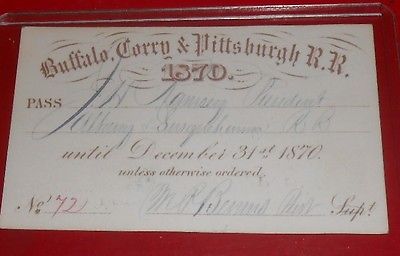 Buffalo, Corry & Pittsburgh R.R.
1870.
PASS President
Albany & Susquehanna R R
until December 31st 1870.
unless otherwise ordered.
No. 72 Supt.